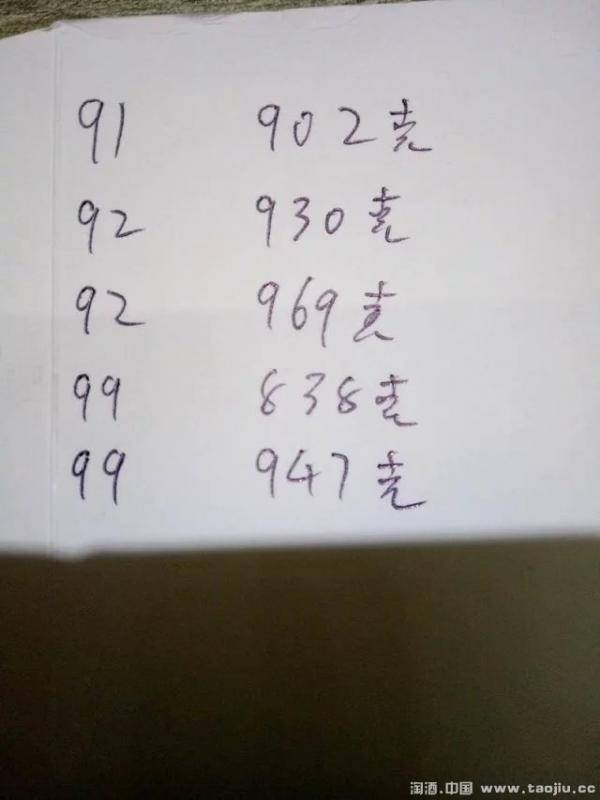 91 902克
92 930克
92 969克
99 838克
99 947克
淘酒.中国 www.taojiu.cc